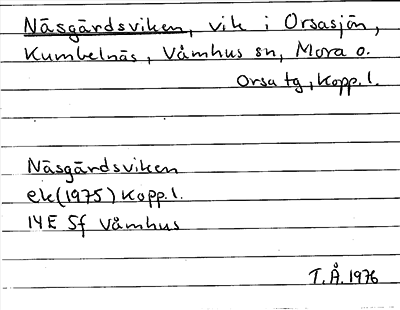 Näsgårdsviken, vik i Orsasjön,
Kumbelnäs, Våmhus sn, Mora o.
Orsa tg, Kopp. l.
Näsgårdsviken
ek (1975) Kopp. l.
14E 5f Våmhus
T.Å. 1976